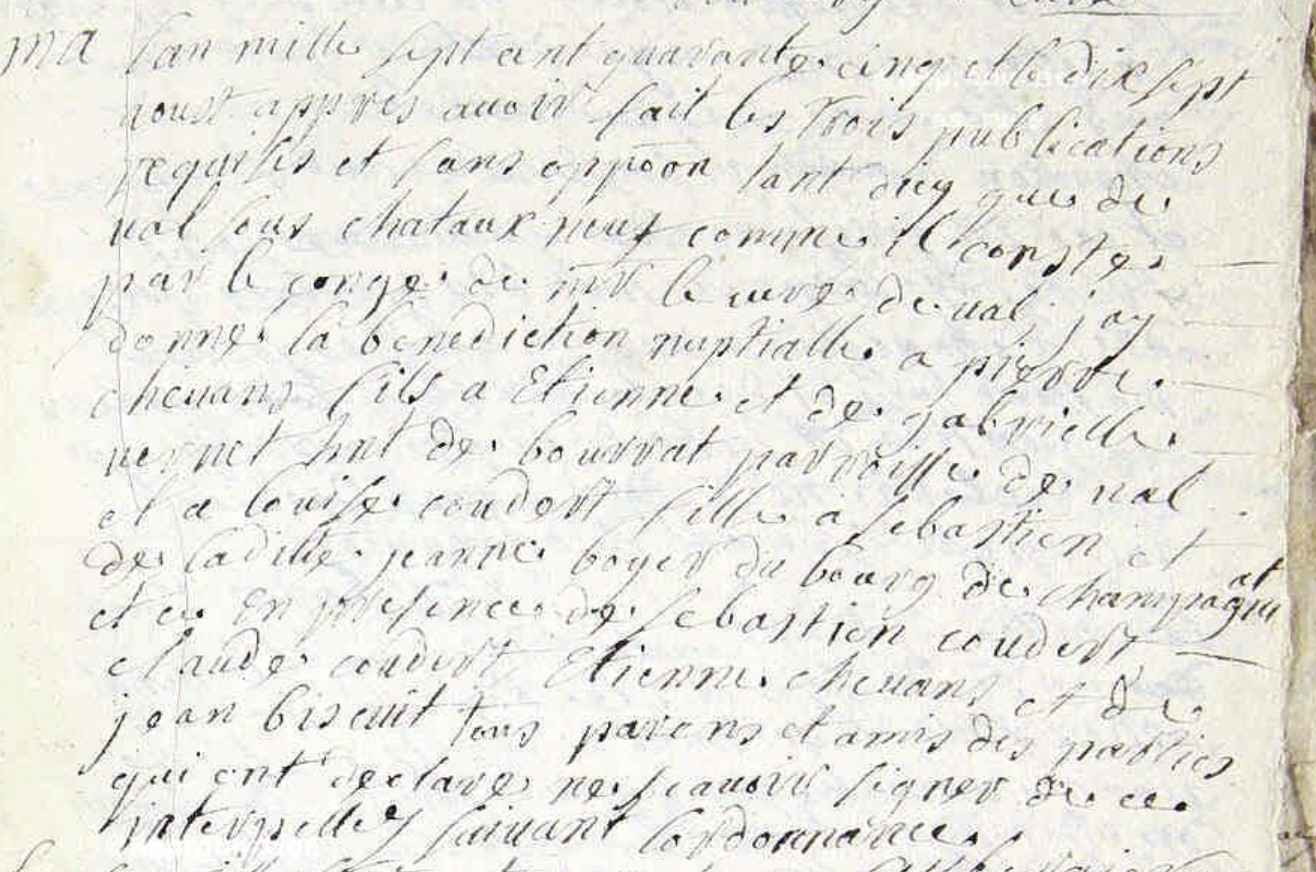 ma lan mille sept cent quarante cinq et le dix sept
aoust appres auoir fait les trois publications
requises et sans oppoon tant dicy que de
ual sous chataux neuf comme il conste
par le conge de mr le cure de ual jay
donne la benediction nuptialle a pierre
cheuans fils a Etienne et de gabrielle
uernet hnt de bourrat parroisse de ual
et a louise coudert fille a sebastien et
de ladite jeanne boyer du bourg de champagnat
et ce En presence de sebastien coudert
claude coudert Etienne cheuans et de
jean biscuit tous parens et amis des parties
qui ont declare ne scauoir signer de ce
interpelles suiuant lordonnance